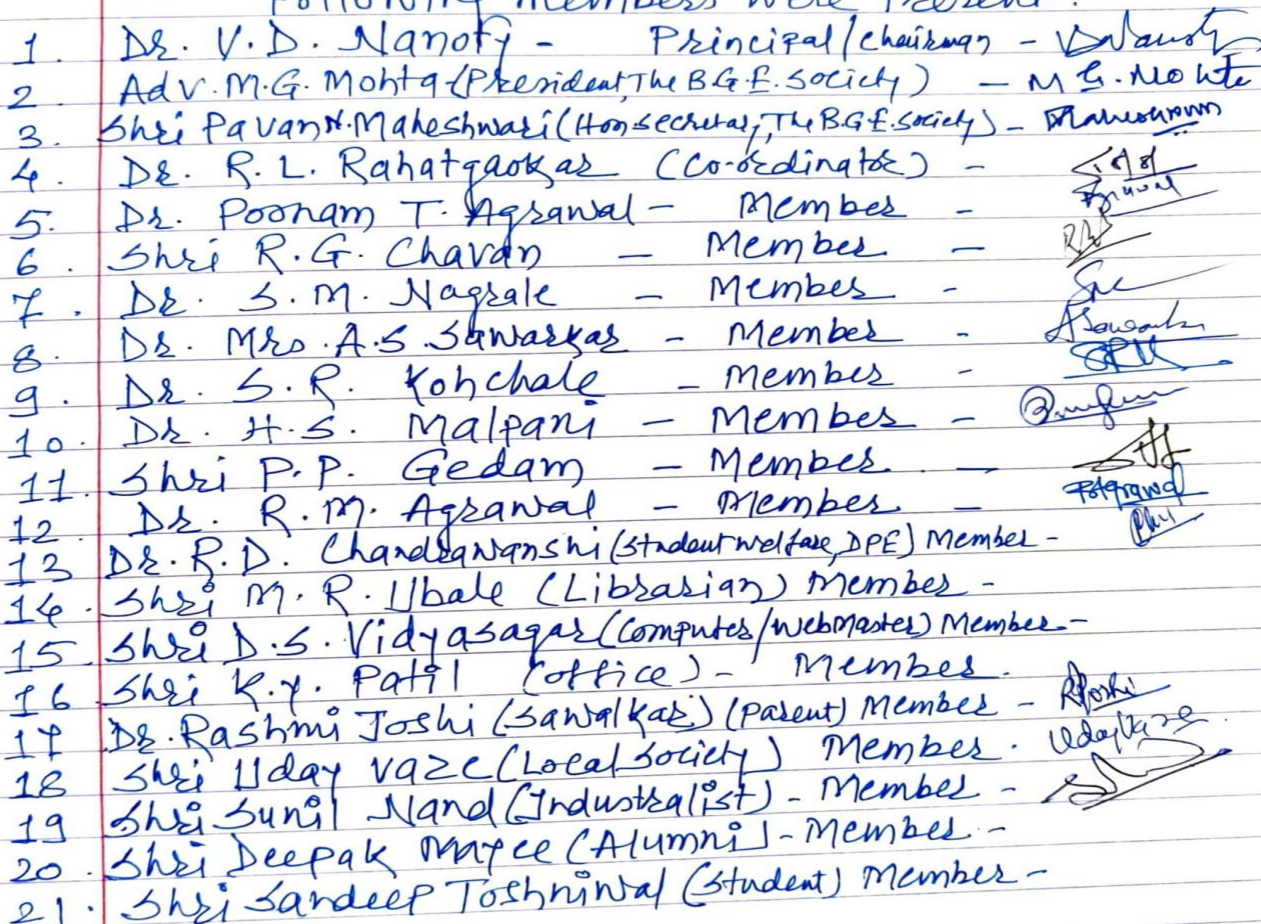 Following Members were Present.
1. Dr. V.D. Nanoty - Principal/Chairman -
2. Adv. M.G. Mohta (President, The B.G.E. Society) - M G. Mohta
3. Shri Pavan N. Maheshwari (Hon secretary, The B.G.E. Society) - Maheshwari
4. Dr. R. L. Rahatgaokar (Co-ordinator) -
5. Dr. Poonam T. Agrawal - Member -
6. Shri R.G. Chavan - Member -
7. Dr. S.M. Nagrale - Member -
8. Dr. Mrs. A.S Sawarkar - Member -
9. Dr. S.R. Kohchale - Member -
10. Dr. H.S. Malpani - Member -
11. Shri P.P. Gedam - Member -
12. Dr. R.M. Agrawal - Member -
13 Dr. R.D. Chandrawanshi (Student welfare, DPE) Member -
14. Shri M.R. Ubale (Librarian) Member -
15. Shri D.S. Vidyasagar (Computer/Webmaster) Member -
16 Shri K.Y. Patil (office) - Member.
17 Dr. Rashmi Joshi (Sawalkar) (Parent) Member - RJoshi
18 Shri Uday Vaze (Local Society) Member. Uday Vaze
19 Shri Sunil Nand (Industralist) - Member -
20. Shri Deepak Mayee (Alumni) - Member -
21. Shri Sandeep Toshniwal (Student) Member -